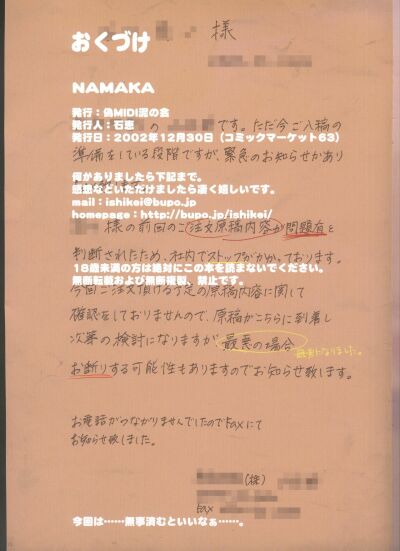 様
おくづけ
NAMAKA
発行：偽MIDI泥の会
発行人：石恵
発行日：2002年12月30日（コミックマーケット63）
の
です。ただ今ご入稿の
準備をしている段階ですが、緊急のお知らせがあり
何かありましたら下記まで。
感想などいただけましたら凄く嬉しいです。
mail：ishikei@bupo.jp
homepage：http://bupo.jp/ishikei/
様の前回のご注文原稿内容が問題有と
判断されたため、社内でストップがかかっております。
18歳未満の方は絶対にこの本を読まないでください。
無断転載および無断複製、禁止です。
今回ご注文頂ける予定の原稿内容に関して
確認をしておりませんので、原稿がこちらに到着し
次第の検討になりますが最悪の場合
最悪になりました。
お断りする可能性もありますのでお知らせ致します。
お電話がつながりませんでしたのでFaxにて
お知らせ致しました。
(株)
Fax
今回は……無事済むといいなぁ……。